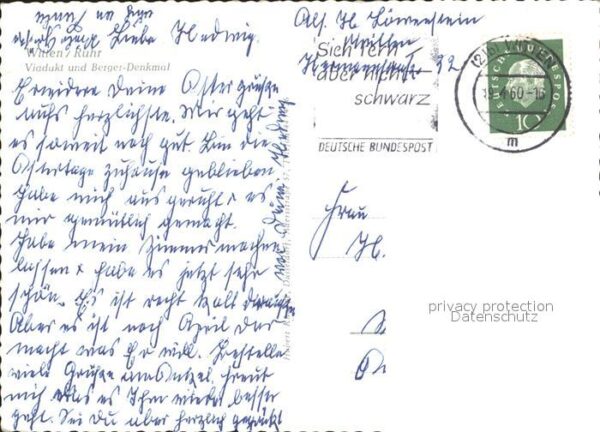 Liebe Hedwig.
Witten / Ruhr
Viadukt und Berger-Denkmal
Erwidere Deine Ostergrüße
aufs herzlichste. Mir geht
es soweit noch gut. Bin die
Ostertage zuhause geblieben
habe mich ausgeruht & es
mir gemütlich gemacht.
Habe mein Zimmer machen
lassen & habe es jetzt sehr
schön. Es ist recht kalt draußen
Aber es ist noch April der
macht was Er will. Bestelle
viele Grüße an freut
mich das es Ihm wieder besser
geht. Sei Du aber herzlich gegrüßt
von Deine Hedwig
Abs. H. Löwenstein
Witten
32
Sich
aber nicht
schwarz
DEUTSCHE BUNDESPOST
60-16
m
DEUTSCHE BUNDESPOST
10
Frau
H.
privacy protection
Datenschutz